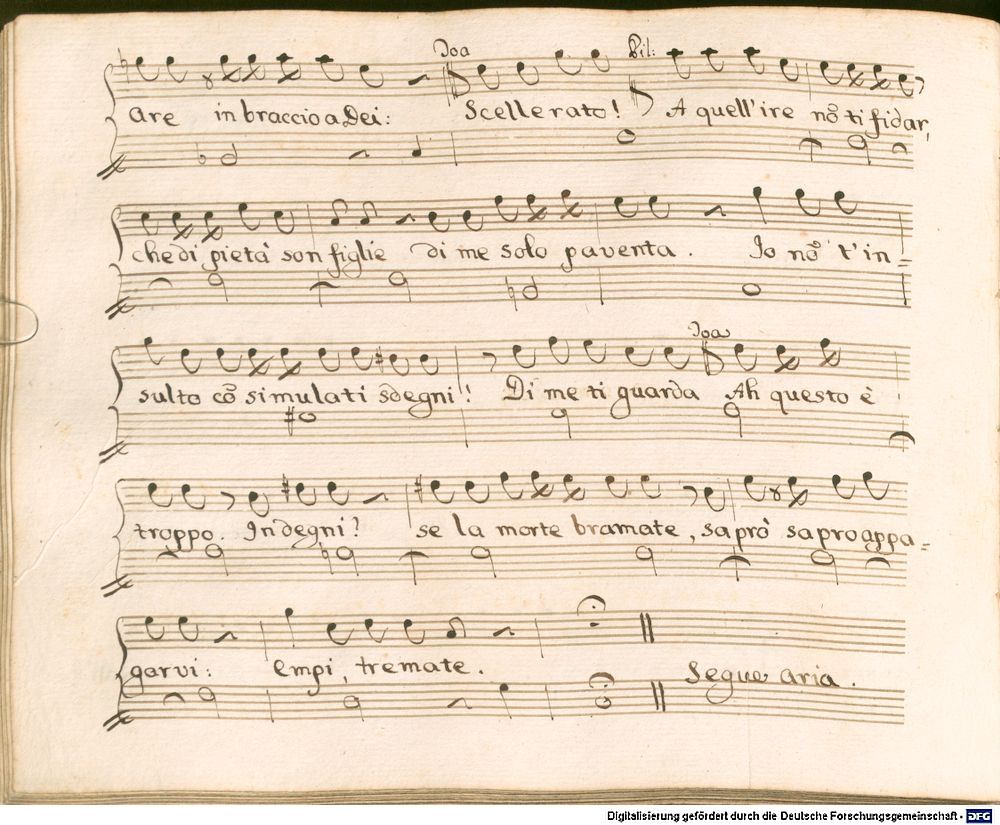 Joa Pil:
are in braccio a Dei: Scellerato! A quell'ire nõ ti fidar,
che di pietà son figlie di me solo paventa. Io nõ t'in=
Joa
sulto cõ simulati sdegni! Di me ti guarda Ah questo è
troppo. Indegni? se la morte bramate, saprò sapro appa=
garvi: empi, tremate. Segue aria.
Digitalisierung gefördert durch die Deutsche Forschungsgemeinschaft - DFG